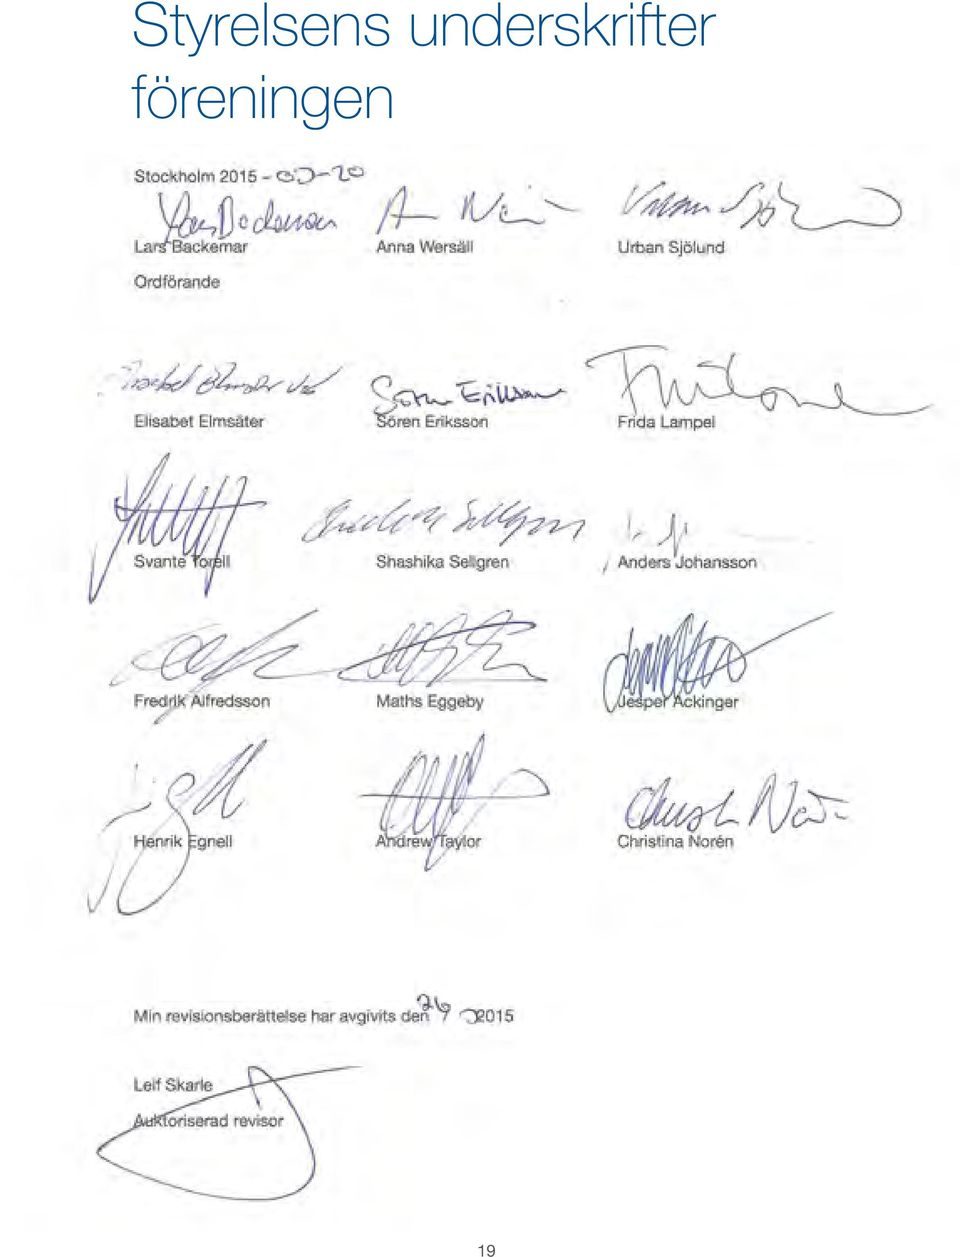 Styrelsens underskrifter
föreningen
Stockholm 2015 - 03-20
Lars Backemar Anna Wersäll Urban Sjölund
Ordförande
Elisabet Elmsäter Sören Eriksson Frida Lampel
Sören Eriksson
Svante Torell Shashika Sellgren Anders Johansson
Fredrik Alfredsson Maths Eggeby Jesper Ackinger
Henrik Egnell Andrew Taylor Christina Norén
Min revisionsberättelse har avgivits den 26 2015
Leif Skarle
Auktoriserad revisor
19